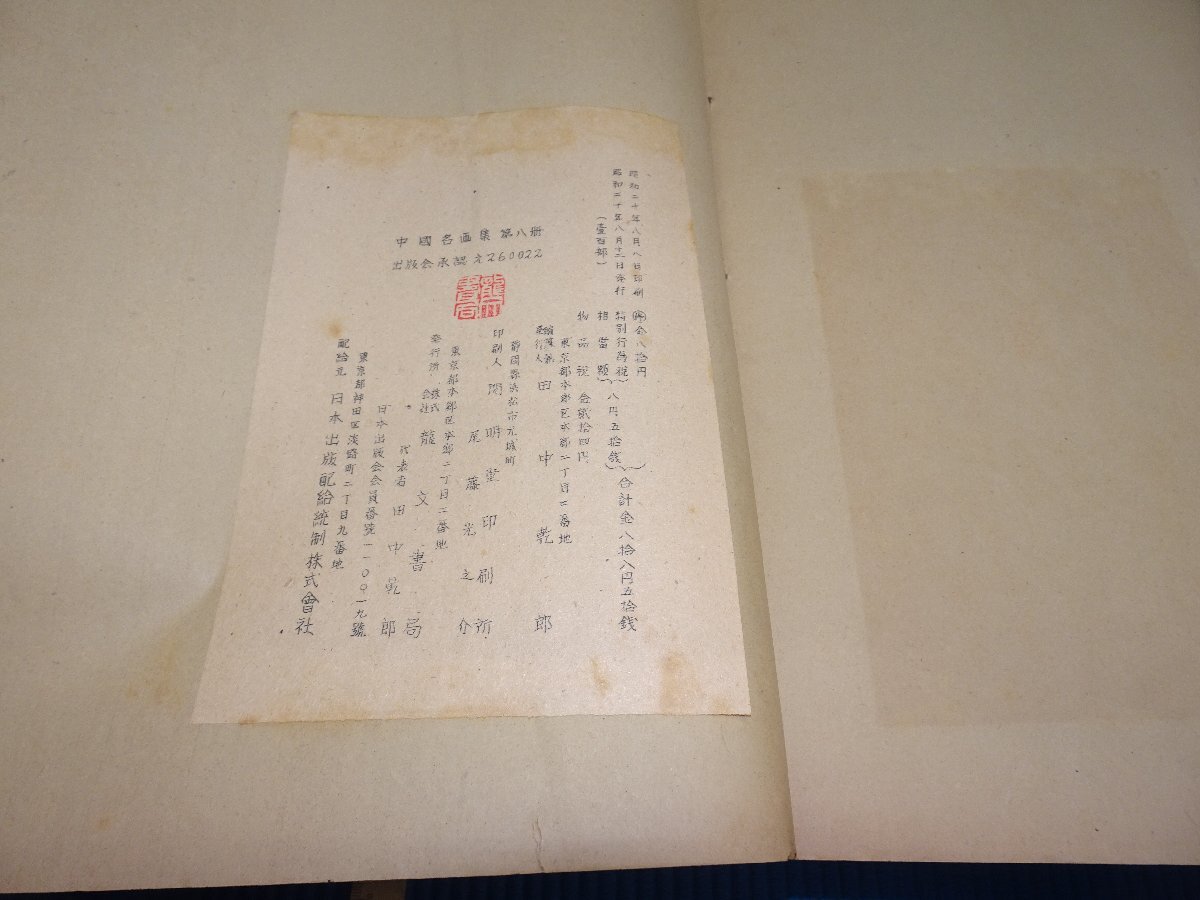 昭和二十年八月八日印刷
昭和二十年八月十三日発行
(壹百部)
金八拾円
特別行為税
相當額
八円五拾銭
合計金八拾八円五拾銭
物品税 金貳拾四円
中國名画集 第八冊
出版会承認 260022
東京都本郷区本郷二丁目二番地
発行人 田中乾郎
静岡縣浜松市元城町
印刷人 開明堂印刷所
尾藤光之介
東京都本郷区本郷二丁目二番地
発行所 株式会社 龍文書局
代表者 田中乾郎
日本出版会会員番號一一〇〇一九號
東京都神田区淡路町二丁目九番地
配給元 日本出版配給統制株式會社